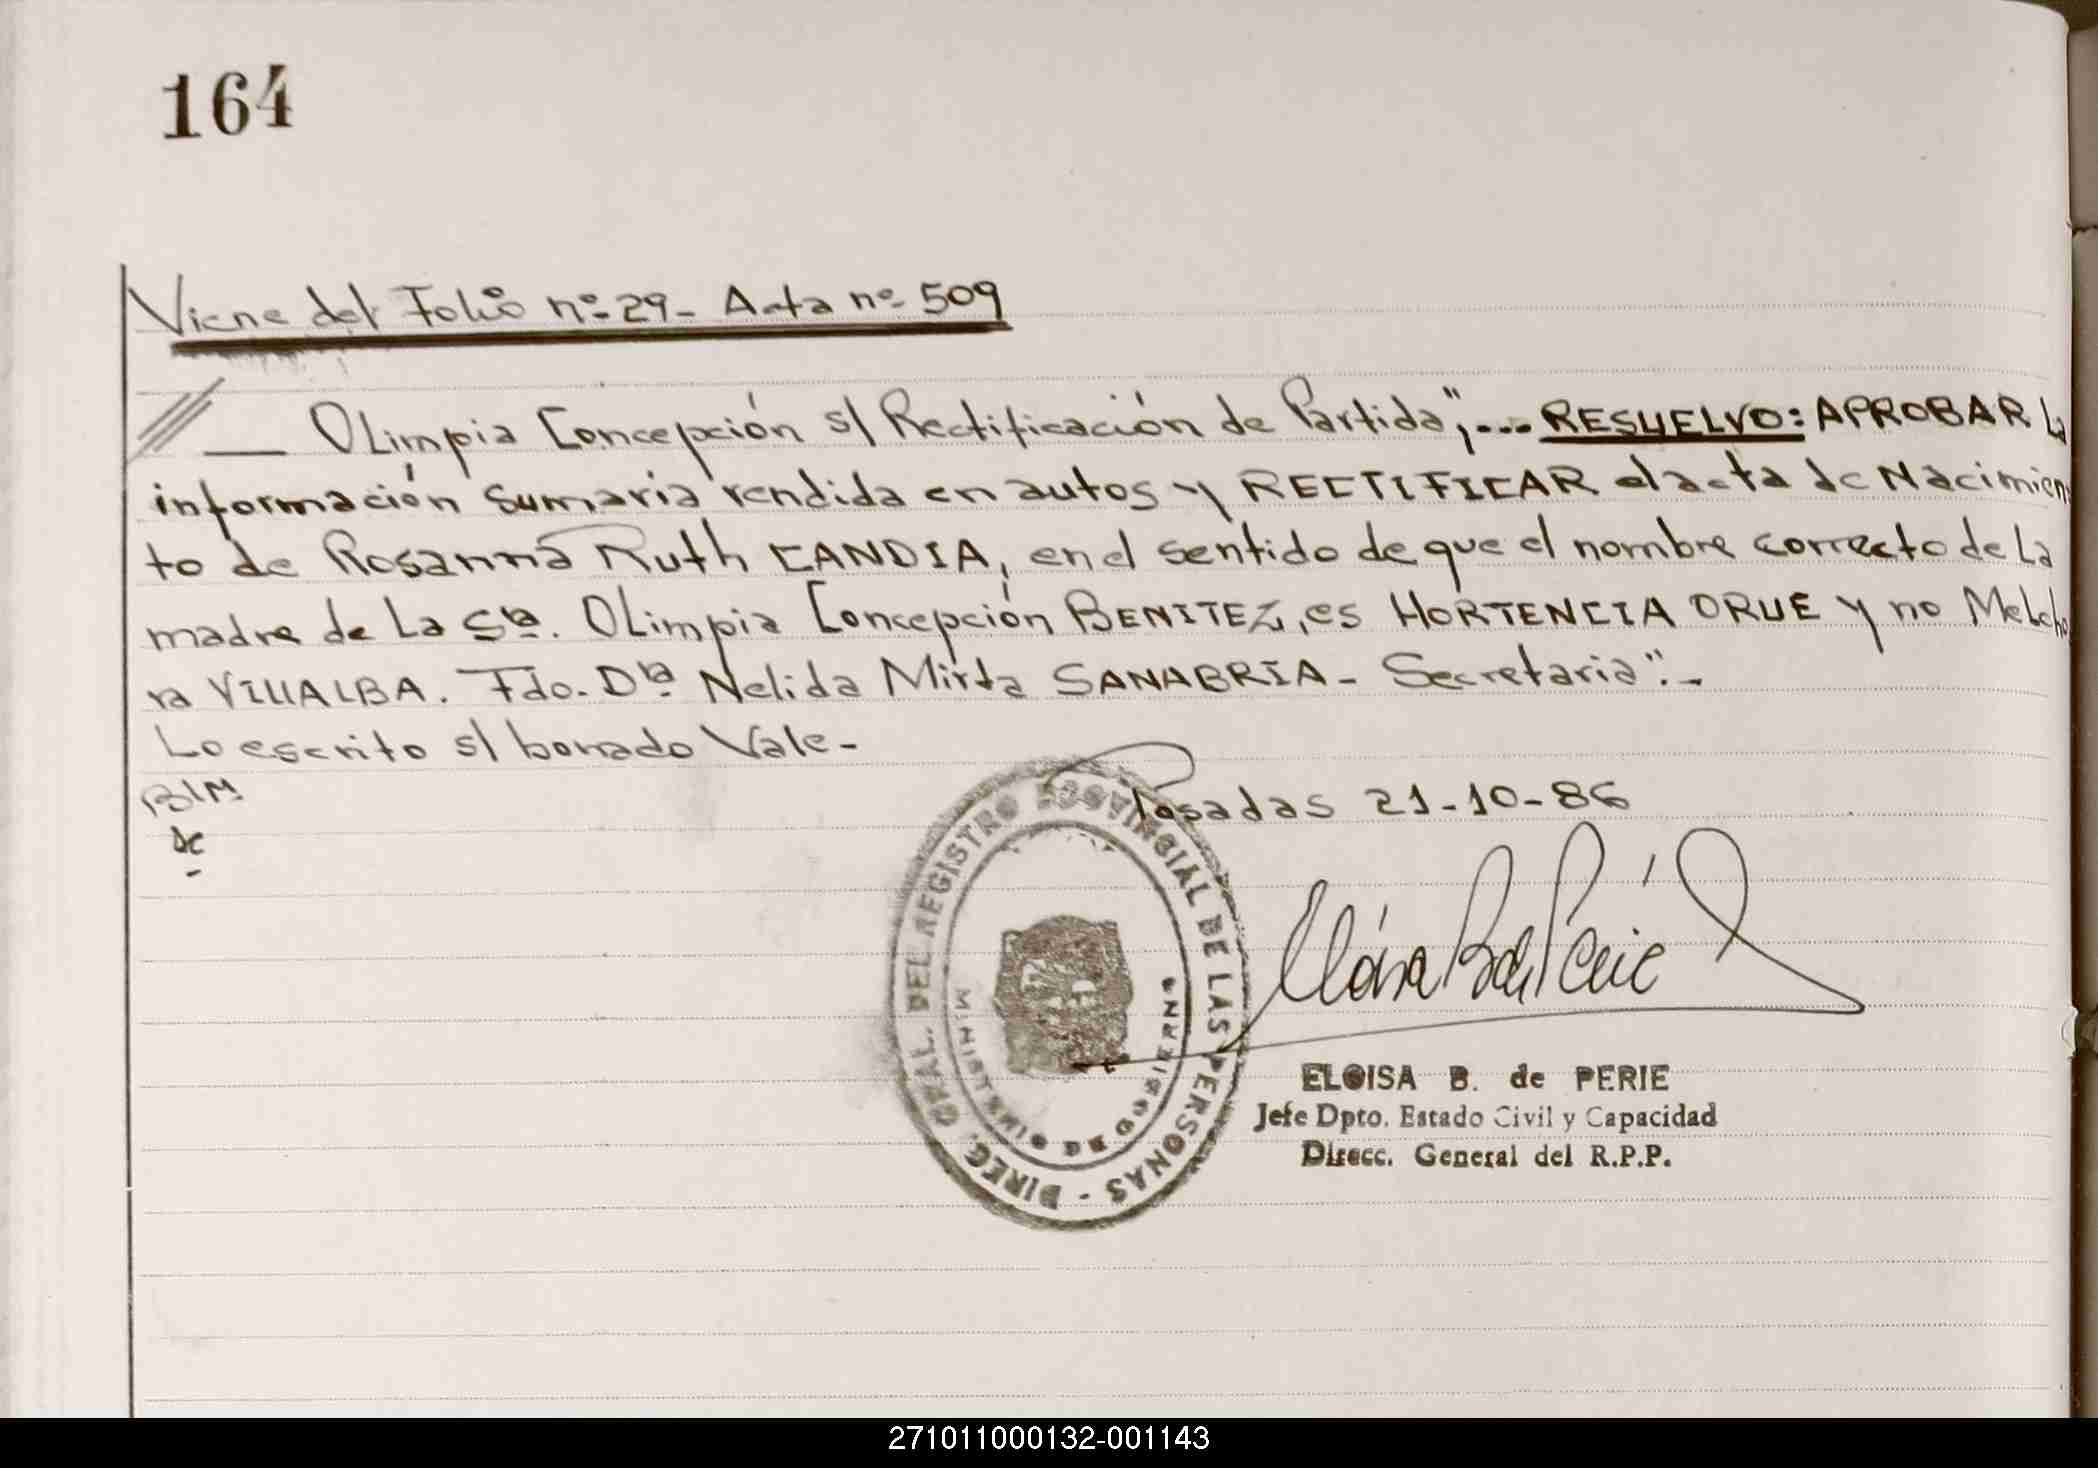 164
Viene del Folio nº 29 - Acta nº 509
/// ___ Olimpia Concepción s/ Rectificación de Partida"; ... RESUELVO: APROBAR La
información sumaria rendida en autos y RECTIFICAR el acta de Nacimien
to de Rosanna Ruth CANDIA, en el sentido de que el nombre correcto de La
madre de La Sra. Olimpia Concepción BENITEZ, es HORTENCIA ORUE y no Melcho
ra VILLALBA. Fdo. Dra Nelida Mirta SANABRIA - Secretaria". -
Lo escrito s/ borrado Vale -
BIM
de
Posadas 21-10-86
DIREC. GRAL. DEL REGISTRO PROVINCIAL DE LAS PERSONAS -
MINISTERIO DE GOBIERNO
ELOISA B. de PERIE
Jefe Dpto. Estado Civil y Capacidad
Direcc. General del R.P.P.
271011000132-001143